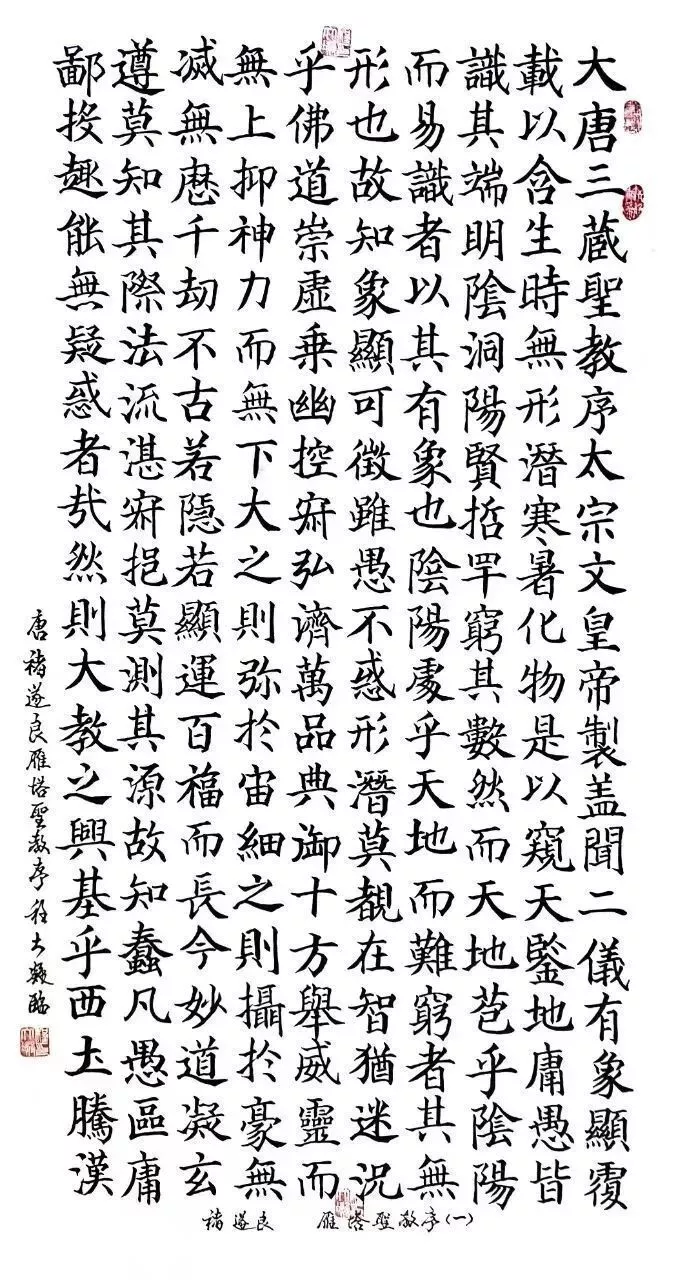 大唐三蔵聖教序太宗文皇帝製盖聞二儀有象顯覆
載以含生時無形潛寒暑化物是以窺天鑒地庸愚皆
識其端明陰洞陽賢哲罕窮其數然而天地苞乎陰陽
而易識者以其有象也陰陽處乎天地而難窮者其無
形也故知象顯可徵雖愚不惑形潛莫覩在智猶迷況
乎佛道崇虛乗幽控寂弘濟萬品典御十方舉威靈而
無上抑神力而無下大之則弥於宙細之則攝於豪無
滅無歷千劫不古若隱若顯運百福而長今妙道凝玄
遵莫知其際法流湛寂挹莫測其源故知蠢凡愚區庸
鄙投趣能無疑惑者哉然則大教之興基乎西土騰漢
唐褚遂良雁塔聖教序臨
褚遂良 雁塔聖教序(一)